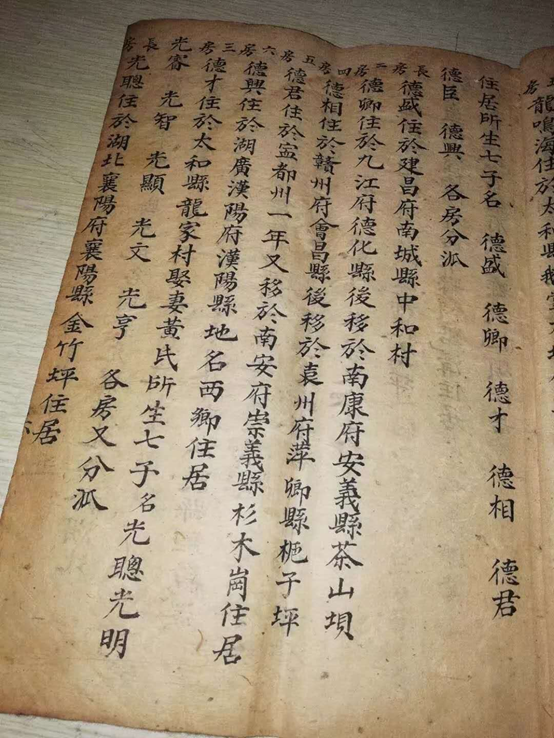 房龍鳴海住於太和縣
住居所生七子名 德盛 德卿 德才 德相 德君
德臣 德興 各房分派
長房德盛住於建昌府南城縣中和村
二房德卿住於九江府德化縣後移於南康府安義縣茶山垻
四房德相住於贛州府會昌縣後移於袁州府萍鄉縣栀子坪
五房德君住於寍都州一年又移於南安府崇義縣杉木崗住居
六房德興住於湖廣漢陽府漢陽縣地名西鄉住居
三房德才住於太和縣龍家村娶妻黄氏所生七子名光聰光明
光睿 光智 光顯 光文 光亨 各房又分派
長房光聰住於湖北襄陽府襄陽縣金竹坪住居